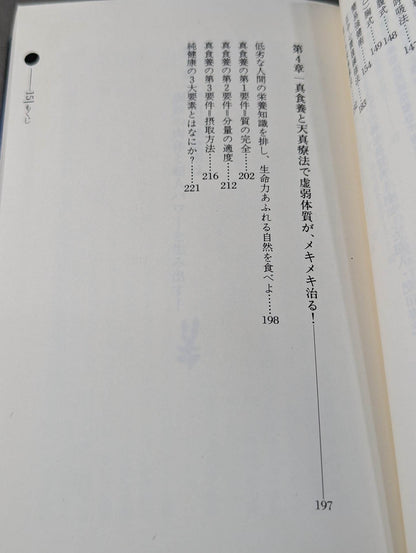 呼吸法
147
腹式
148
胸式
149
154
第4章―真食養と天真療法で虚弱体質が、メキメキ治る!――197
低劣な人間の栄養知識を排し、生命力あふれる自然を食べよ……198
真食養の第1要件=質の完全……202
真食養の第2要件=分量の適度……212
真食養の第3要件=摂取方法……216
純健康の3大要素とはなにか?……221
15│もくじ